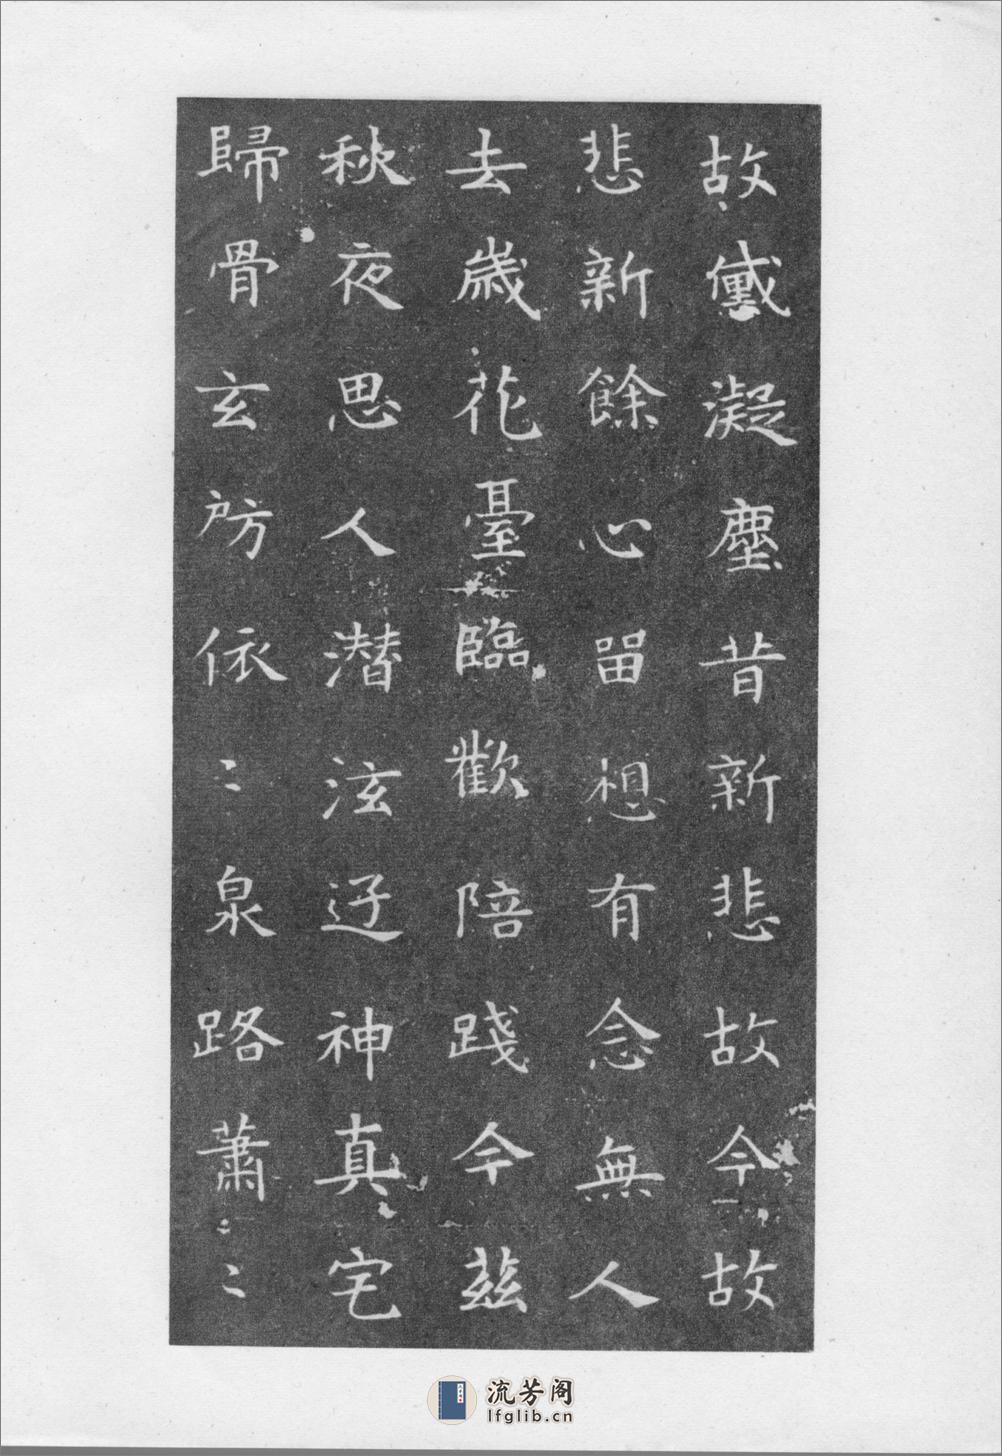 故黛凝塵昔新悲故今故
悲新餘心留想有念無人
去歲花臺臨歡陪踐今茲
秋夜思人潛泫迂神真宅
歸骨玄房依〻泉路蕭〻
流芳阁
lfglib.cn